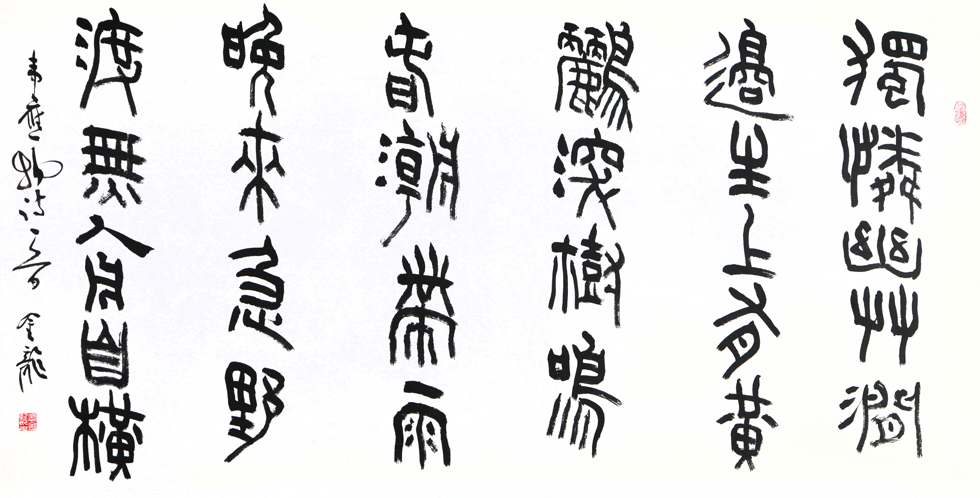 獨憐幽艸澗
邊生上有黃
鸝深樹鳴
春潮帶雨
晚來急野
渡無人舟自橫
韋應物诗一首 金龍